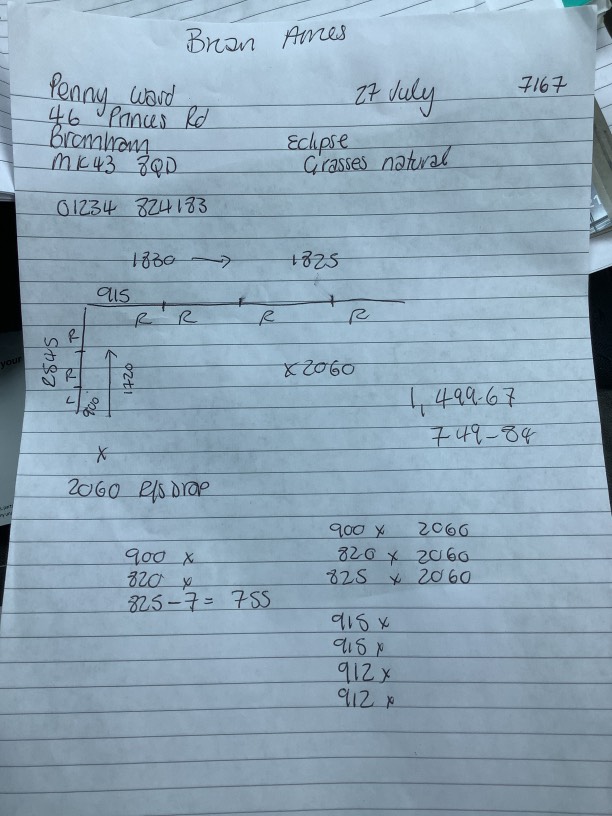 Brian Ames
Penny Ward 27 July 7167
46 Princes Rd
Bromham Eclipse
MK43 8QD Grasses natural
01234 824183
1830 → 1825
915
R R R R
2545
R
R
L
900
1720
x2060
1,499.67
749-84
x
2060 R/s Drop
900 x 2060
900 x 820 x 2060
820 x 825 x 2060
825-7= 755
915 x
915 x
912 x
912 x